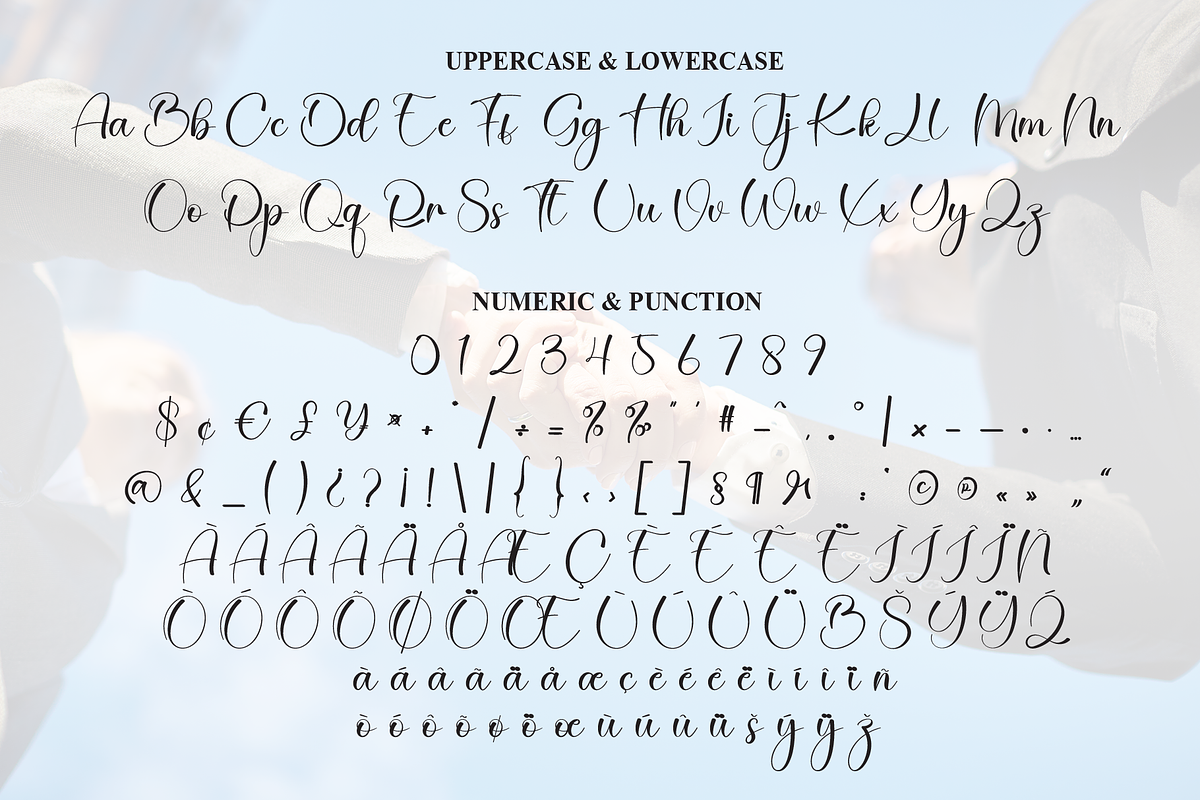 UPPERCASE & LOWERCASE
Aa Bb Cc Dd Ee Ff Gg Hh Ii Jj Kk Ll Mm Nn
Oo Pp Qq Rr Ss Tt Uu Vv Ww Xx Yy Zz
NUMERIC & PUNCTION
0 1 2 3 4 5 6 7 8 9
$ ¢ € £ ¥ ¤ + * / ÷ = % ‰ " ' # – ^ , . ° | × - — • · …
@ & _ ( ) ¿ ? ¡ ! \ | { } ‹ › [ ] § ¶ : © ® « » „ “
À Á Â Ã Ä Å Æ Ç È É Ê Ë Ì Í Î Ï Ñ
Ò Ó Ô Õ Ø Ö Œ Ù Ú Û Ü B Š Ý Ÿ Ž
à á â ã ä å æ ç è é ê ë ì í î ï ñ
ò ó ô õ ø ö œ ù ú û ü š ý ÿ ž